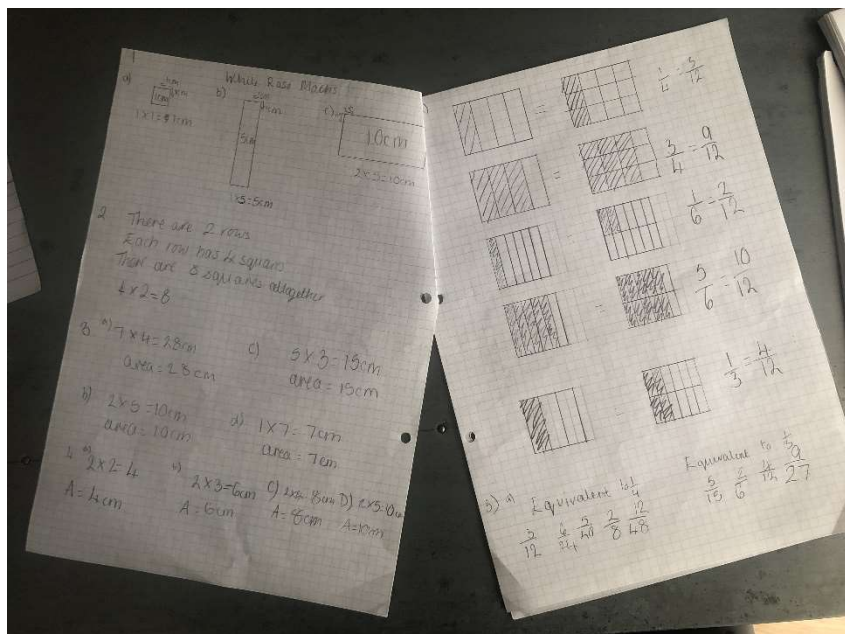 1
White Rose Maths
a) 1cm 1cm 1cm
1 x 1 = 1cm
b) 1cm
5cm
1x5=5cm
c)
10cm
2x5=10cm
2
There are 2 rows
Each row has 4 squares
There are 8 squares altogether
4 x 2 = 8
3 a) 7 x 4 = 28cm
area = 28cm
b) 2 x 5 = 10cm
area = 10cm
c) 5 x 3 = 15cm
area = 15cm
d) 1 x 7 = 7cm
area = 7cm
4 a) 2 x 2 = 4
A = 4cm
2 x 3 = 6cm
A = 6cm
C) 8cm
A = 8cm
D) 2 x 5 = 10cm
A = 10cm
= 1/4 = 3/12
= 3/4 = 9/12
= 1/6 = 2/12
= 5/6 = 10/12
1/3 = 4/12
a) Equivalent to 1/4
3/12 6/24 2/8 12/48
Equivalent to 1/3
5/15 2/6 4/12 9/27